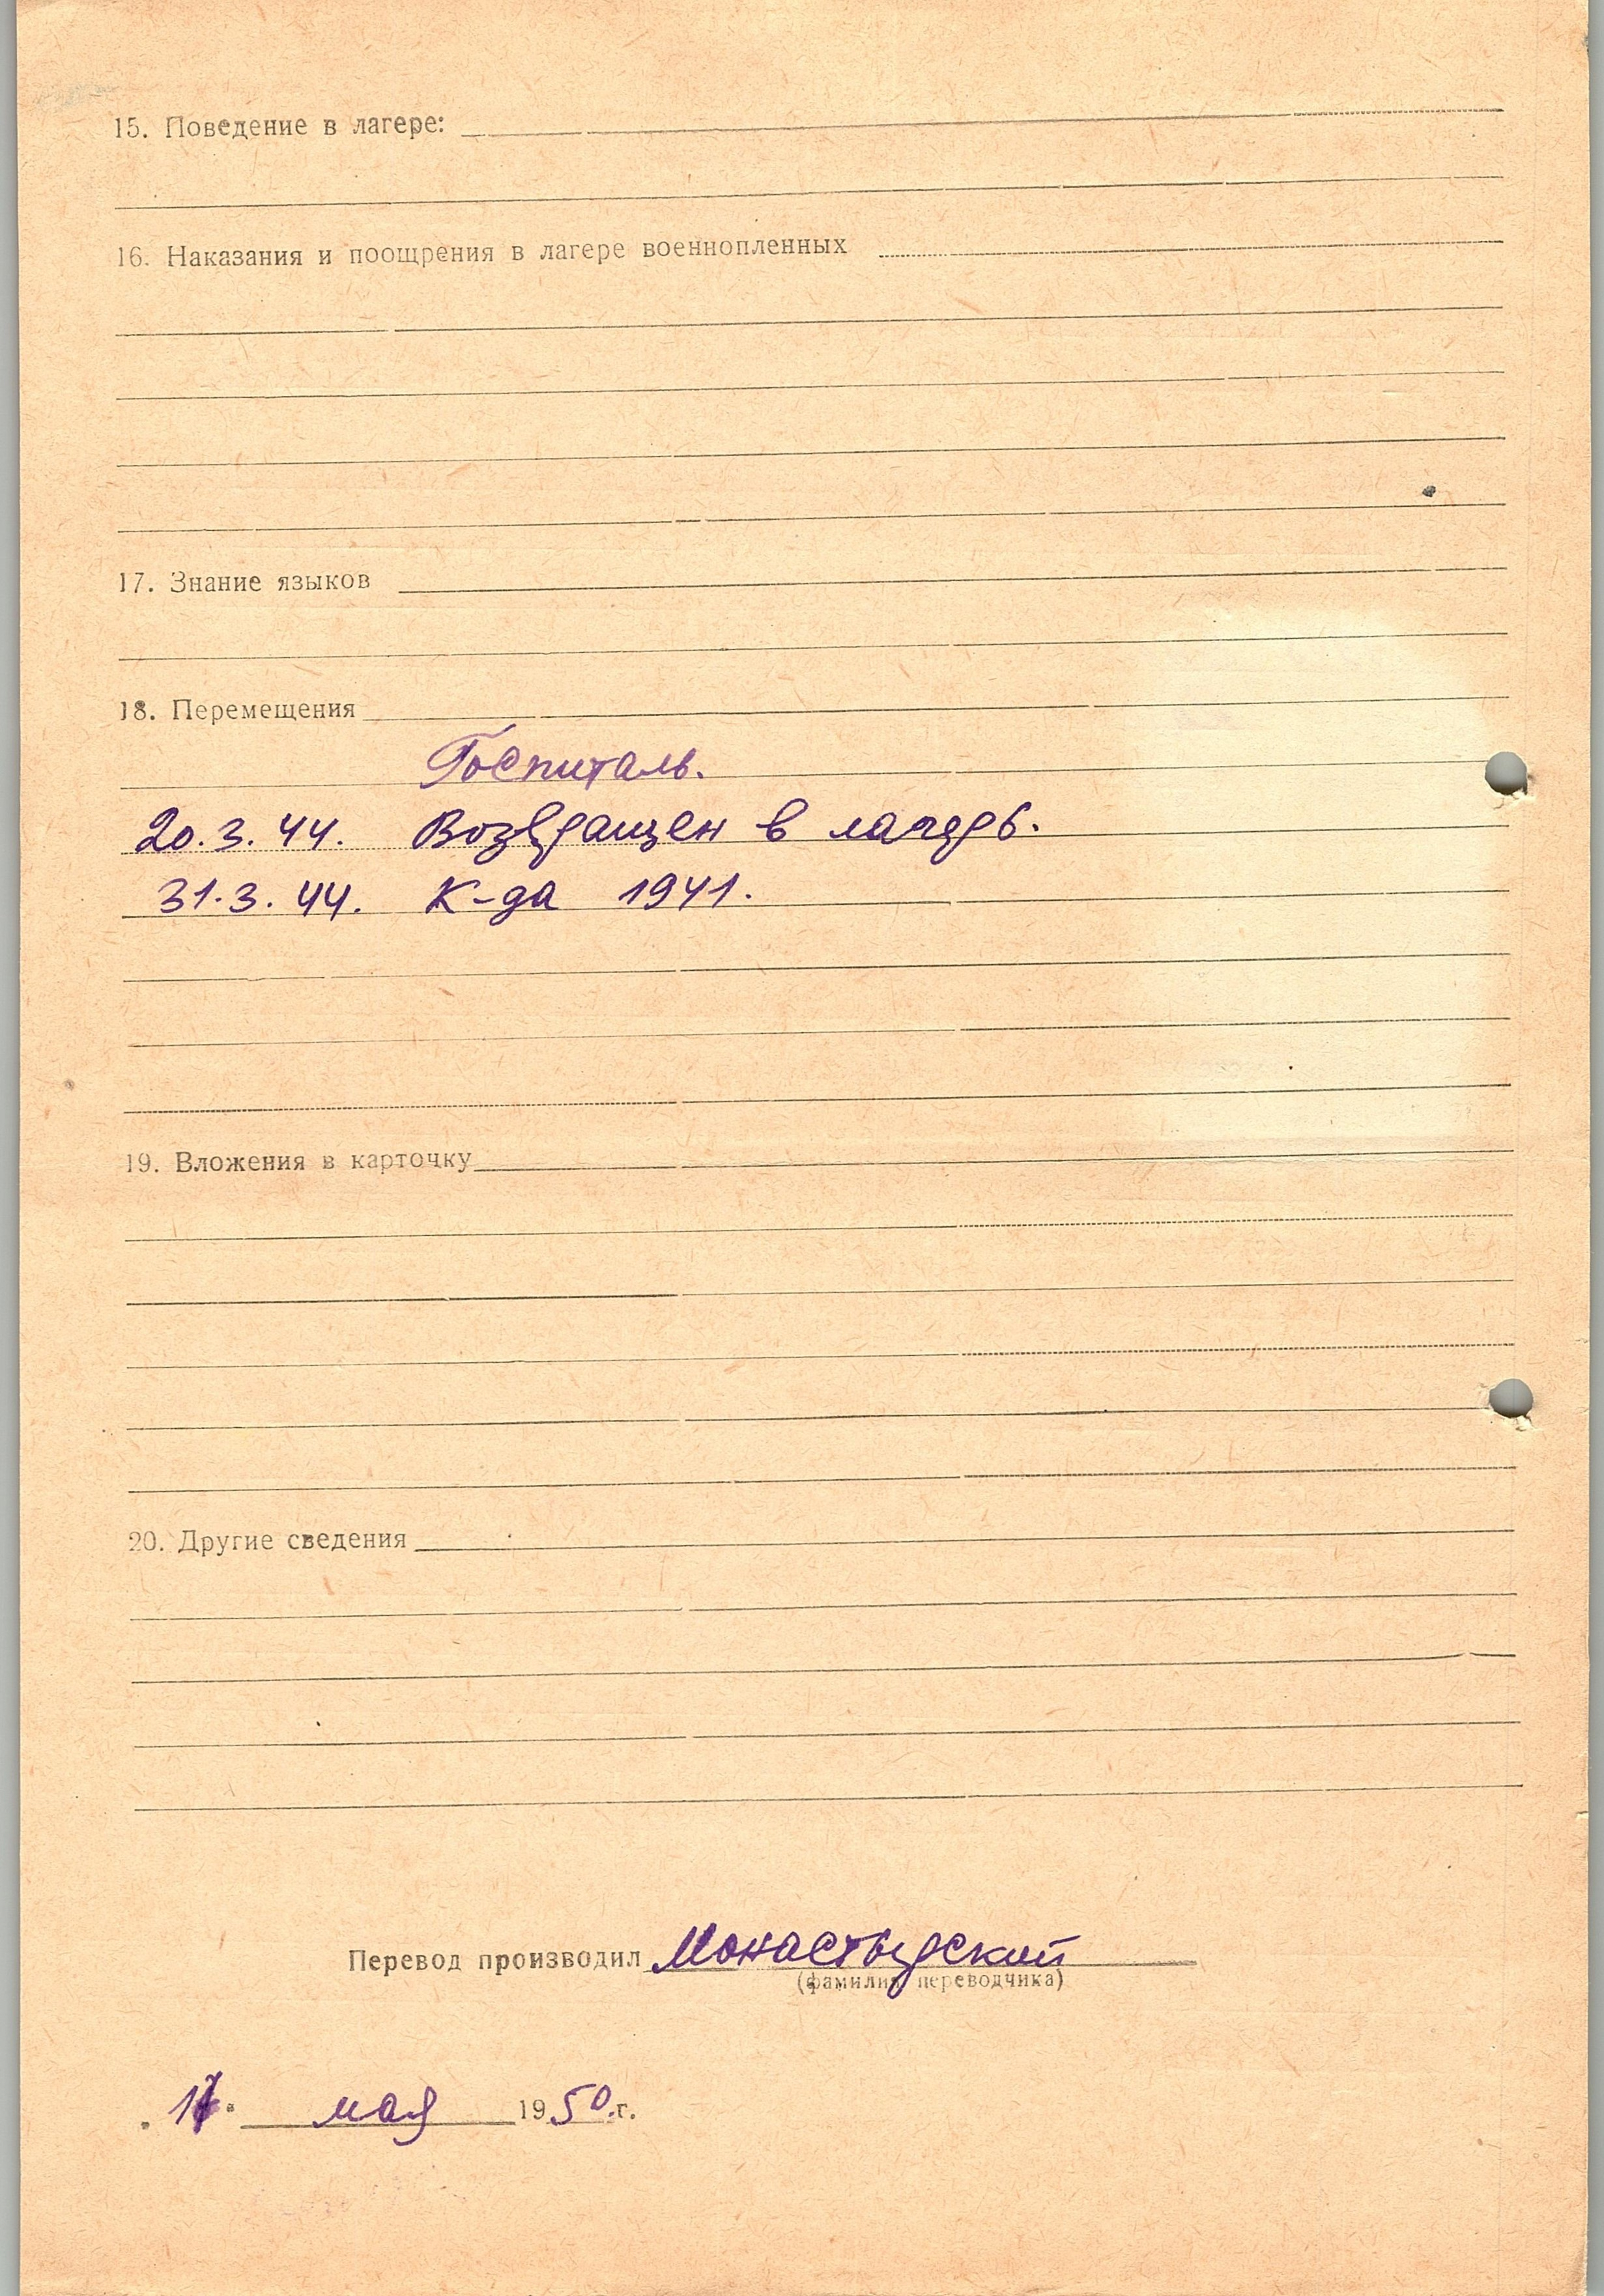 15. Поведение в лагере:
16. Наказания и поощрения в лагере военнопленных
17. Знание языков
18. Перемещения
Госпиталь.
20.3.44. Возвращен в лагерь.
31.3.44. К-да 1941.
19. Вложения в карточку
20. Другие сведения
Перевод производил Монастырский
(фамилия переводчика)
мая 1950.г.